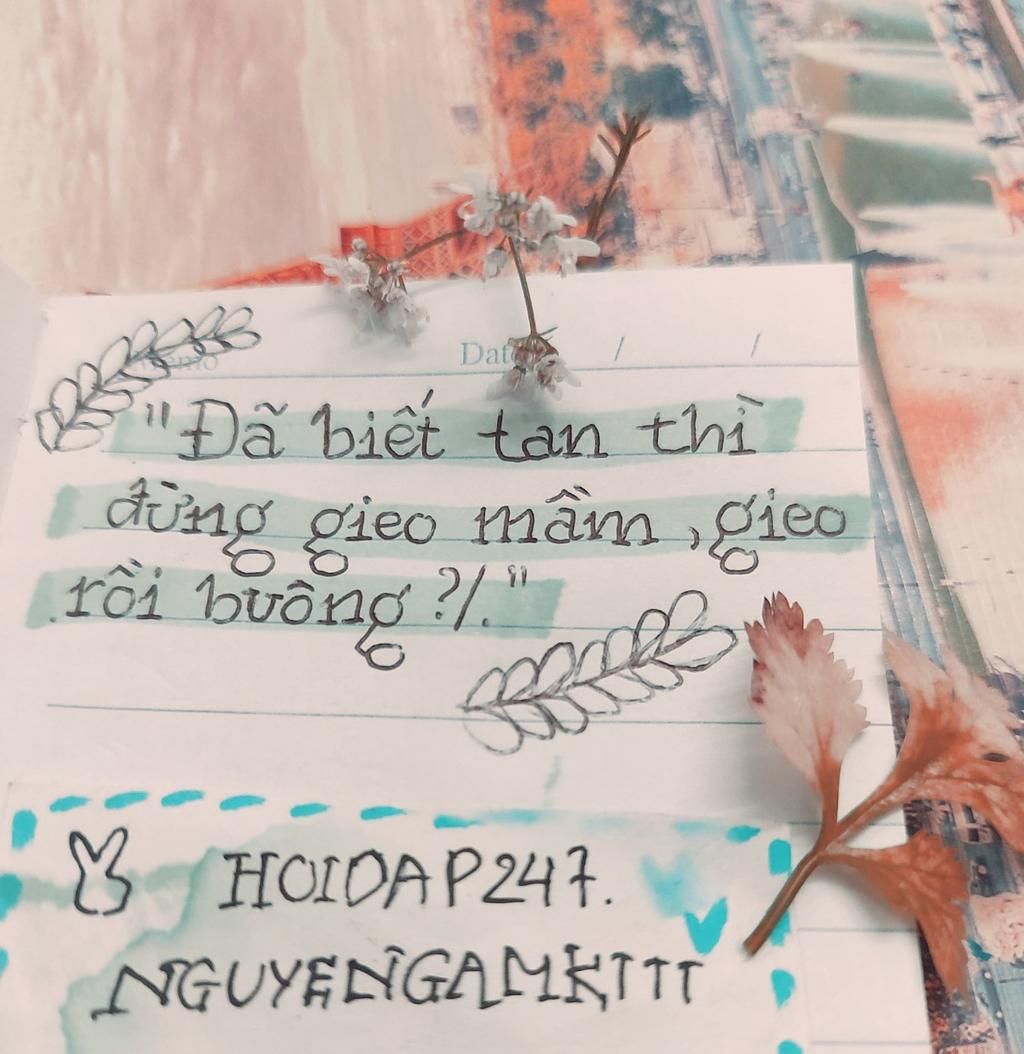 Memo Date / /
"Đã biết tan thì
đừng gieo mầm, gieo
rồi buông?/."
HOIDAP247.
NGUYENNGAMKTTT